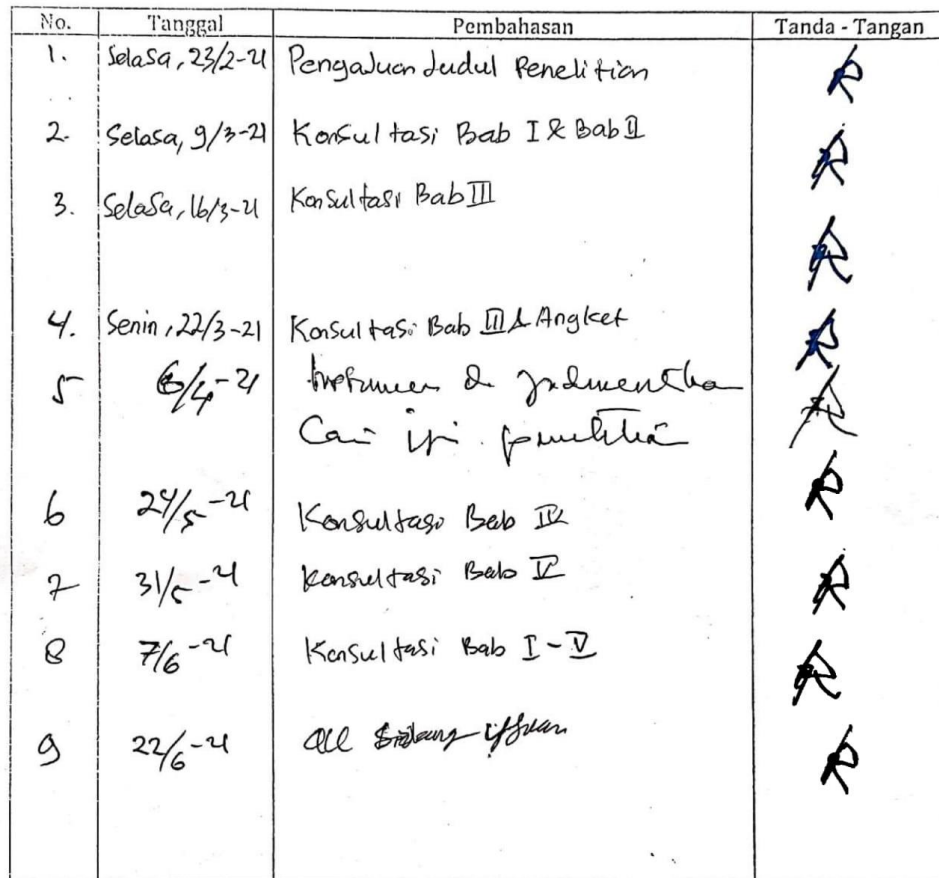 No. Tanggal Pembahasan Tanda - Tangan
1. Selasa, 23/2-21 Pengajuan Judul Penelitian
2. Selasa, 9/3-21 Konsultasi Bab I & Bab II
3. Selasa, 16/3-21 Konsultasi Bab III
4. Senin, 22/3-21 Konsultasi Bab III & Angket
5 6/4-21
6 24/5-21 Konsultasi Bab IV
7 31/5-21 Konsultasi Bab V
8 7/6-21 Konsultasi Bab I - V
9 22/6-21